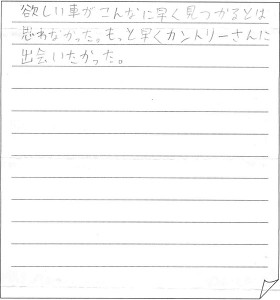 欲しい車がこんなに早く見つかるとは
思わなかった。もっと早くカントリーさんに
出会いたかった。